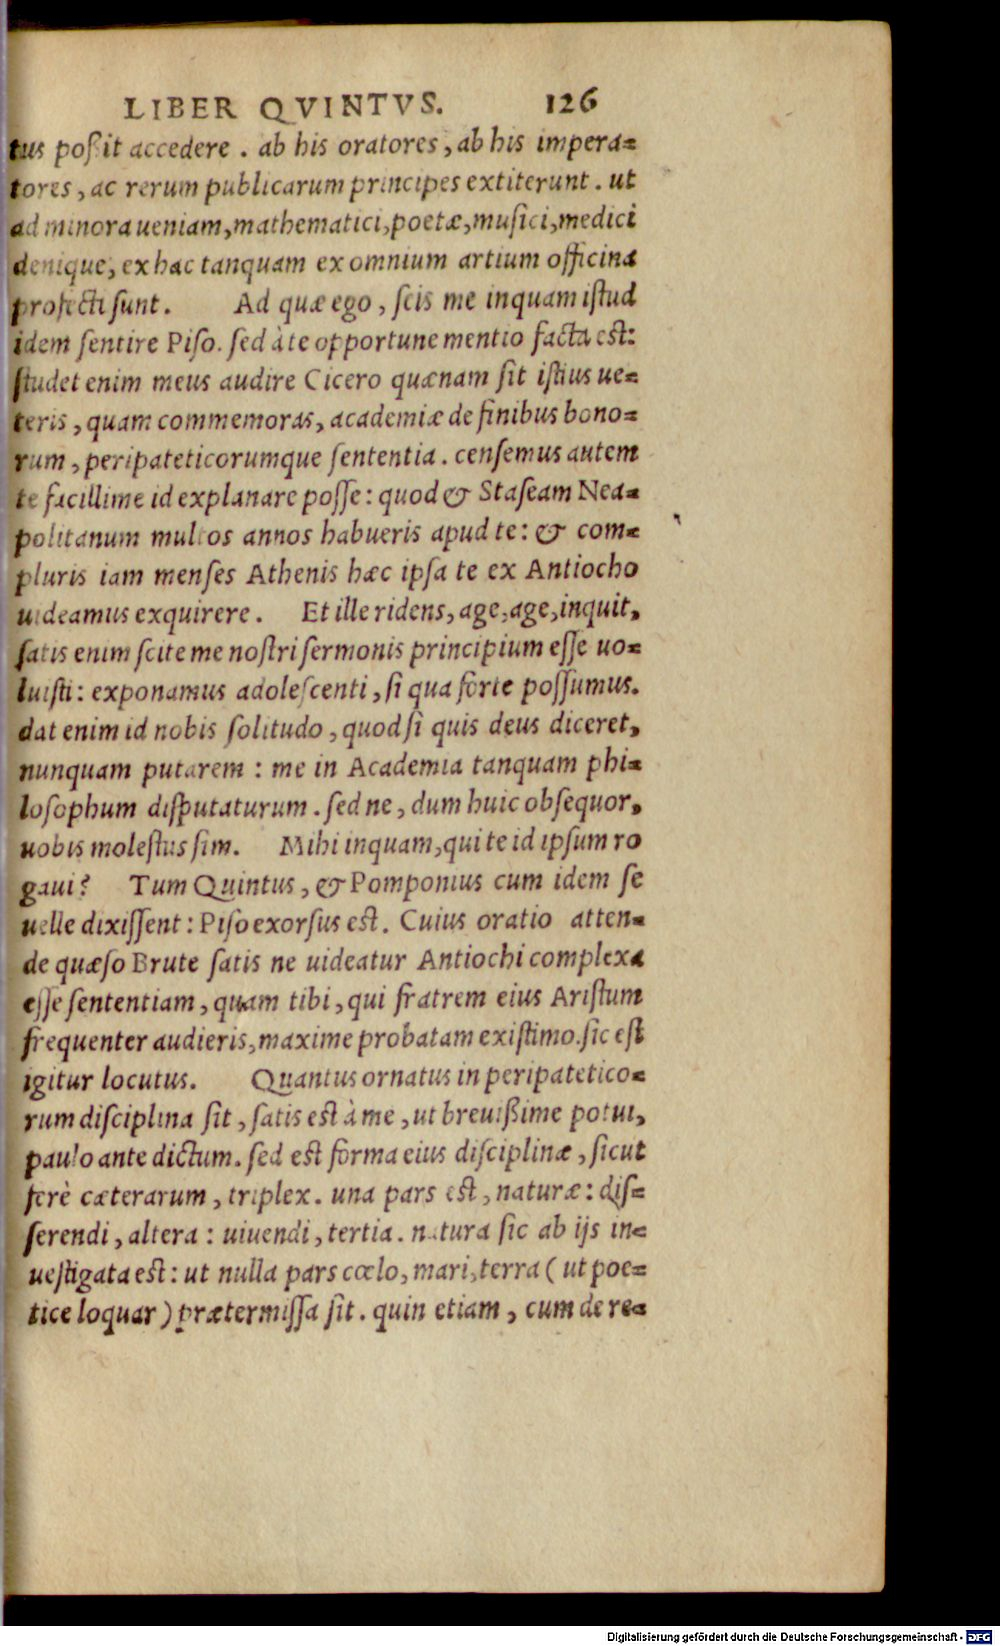 LIBER QVINTVS. 126
tus poßit accedere . ab his oratores , ab his impera-
tores , ac rerum publicarum principes extiterunt . ut
ad minora ueniam, mathematici, poetæ, musici, medici
denique, ex hac tanquam ex omnium artium officina
profecti sunt. Ad quæ ego , scis me inquam istud
idem sentire Piso. sed à te opportune mentio facta est:
studet enim meus audire Cicero quænam sit istius ue-
teris , quam commemoras, academiæ de finibus bono-
rum , peripateticorumque sententia . censemus autem
te facillime id explanare posse : quod & Staseam Nea-
politanum multos annos habueris apud te : & com-
pluris iam menses Athenis hæc ipsa te ex Antiocho
uideamus exquirere . Et ille ridens, age, age, inquit,
satis enim scite me nostri sermonis principium esse uo-
luisti : exponamus adolescenti , si qua forte possumus.
dat enim id nobis solitudo , quod sì quis deus diceret,
nunquam putarem : me in Academia tanquam phi-
losophum disputaturum . sed ne , dum huic obsequor,
uobis molestus sim. Mihi inquam, qui te id ipsum ro
gaui? Tum Quintus , & Pomponius cum idem se
uelle dixissent : Piso exorsus est . Cuius oratio atten-
de quæso Brute satis ne uideatur Antiochi complexa
esse sententiam , quam tibi , qui fratrem eius Aristum
frequenter audieris, maxime probatam existimo. sic est
igitur locutus. Quantus ornatus in peripatetico-
rum disciplina sit , satis est à me , ut breuißime potui,
paulo ante dictum . sed est forma eius disciplinæ , sicut
ferè cæterarum , triplex . una pars est , naturæ : dis-
serendi , altera : uiuendi , tertia . natura sic ab ijs in-
uestigata est : ut nulla pars cœlo, mari, terra ( ut poe-
tice loquar ) prætermissa sit . quin etiam , cum de re-
Digitalisierung gefördert durch die Deutsche Forschungsgemeinschaft - DFG